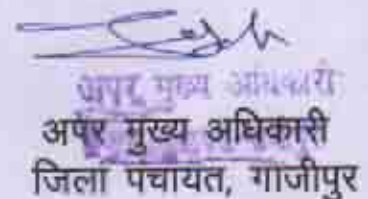 अपर मुख्य अधिकारी
अपर मुख्य अधिकारी
जिला पंचायत, गाजीपुर